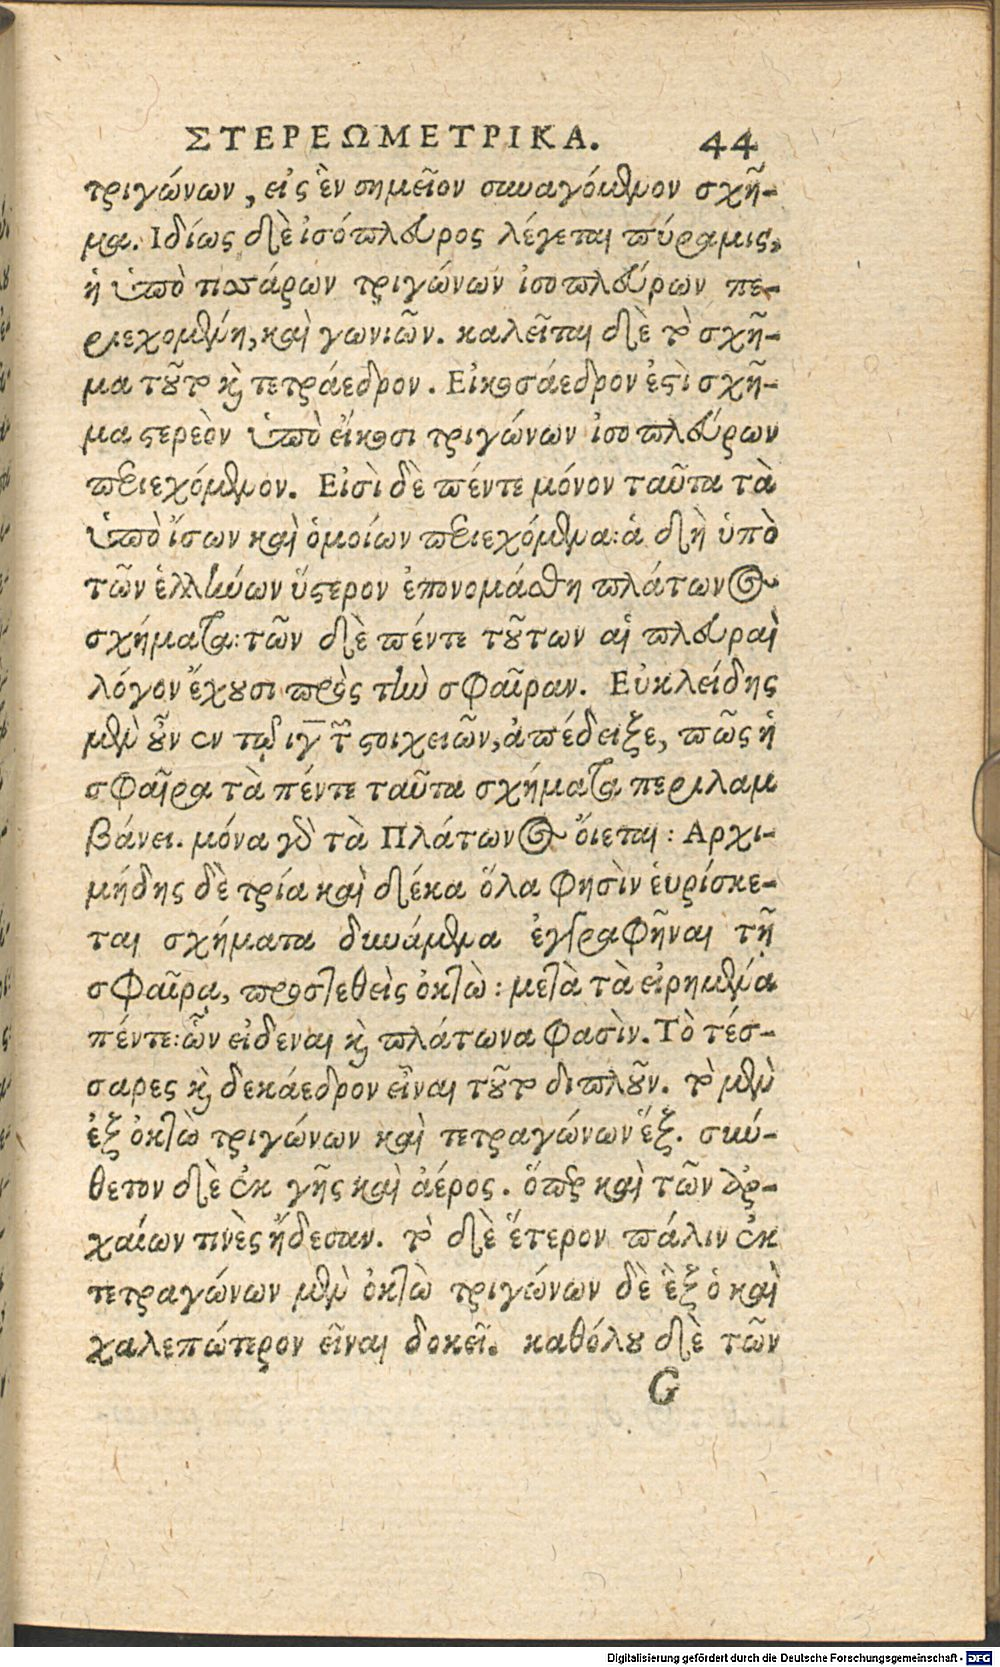 ΣΤΕΡΕΩΜΕΤΡΙΚΑ. 44
τριγώνων, εἰς ἓν σημεῖον συναγόμενον σχῆ-
μα. Ιδίως δὲ ἰσόπλευρος λέγεται πύραμις,
ἡ ὑπὸ τεσσάρων τριγώνων ἰσοπλεύρων πε-
ριεχομένη, καὶ γωνιῶν. καλεῖται δὲ τὸ σχῆ-
μα τοῦτο καὶ τετράεδρον. Εἰκοσάεδρον ἐστὶ σχῆ-
μα στερεὸν ὑπὸ εἴκοσι τριγώνων ἰσοπλεύρων
περιεχόμενον. Εἰσὶ δὲ πέντε μόνον ταῦτα τὰ
ὑπὸ ἴσων καὶ ὁμοίων περιεχόμενα: ἁ δὴ ὑπὸ
τῶν ἑλλήνων ὕστερον ἐπονομάσθη πλάτωνος
σχήματα: τῶν δὲ πέντε τούτων αἱ πλευραὶ
λόγον ἔχουσι πρὸς τὴν σφαῖραν. Εὐκλείδης
μὲν οὖν ἐν τῷ ιγ τῶν στοιχειῶν, ἀπέδειξε, πῶς ἡ
σφαῖρα τὰ πέντε ταῦτα σχήματα περιλαμ
βάνει. μόνα γὰρ τὰ Πλάτωνος ὄιεται: Αρχι-
μήδης δὲ τρία καὶ δέκα ὅλα φησὶν ἑυρίσκε-
ται σχήματα δυνάμενα ἐγγραφῆναι τῇ
σφαῖρᾳ, προστεθεὶς ὀκτὼ: μετὰ τὰ εἰρημένα
πέντε: ὧν εἰδεναι καὶ πλάτωνα φασὶν. Τὸ τέσ-
σαρες καὶ δεκάεδρον εἶναι τοῦτο διπλοῦν. τὸ μὲν
ἐξ ὀκτὼ τριγώνων καὶ τετραγώνων ἕξ. σύν-
θετον δὲ ἐκ γῆς καὶ ἀέρος. ὅπερ καὶ τῶν ἀρ-
χαίων τινὲς ἤδεσαν. τὸ δὲ ἕτερον πάλιν ἐκ
τετραγώνων μὲν ὀκτὼ τριγώνων δὲ ἓξ ὁ καὶ
χαλεπώτερον εἶναι δοκεῖ. καθόλου δὲ τῶν
G
Digitalisierung gefördert durch die Deutsche Forschungsgemeinschaft - DFG